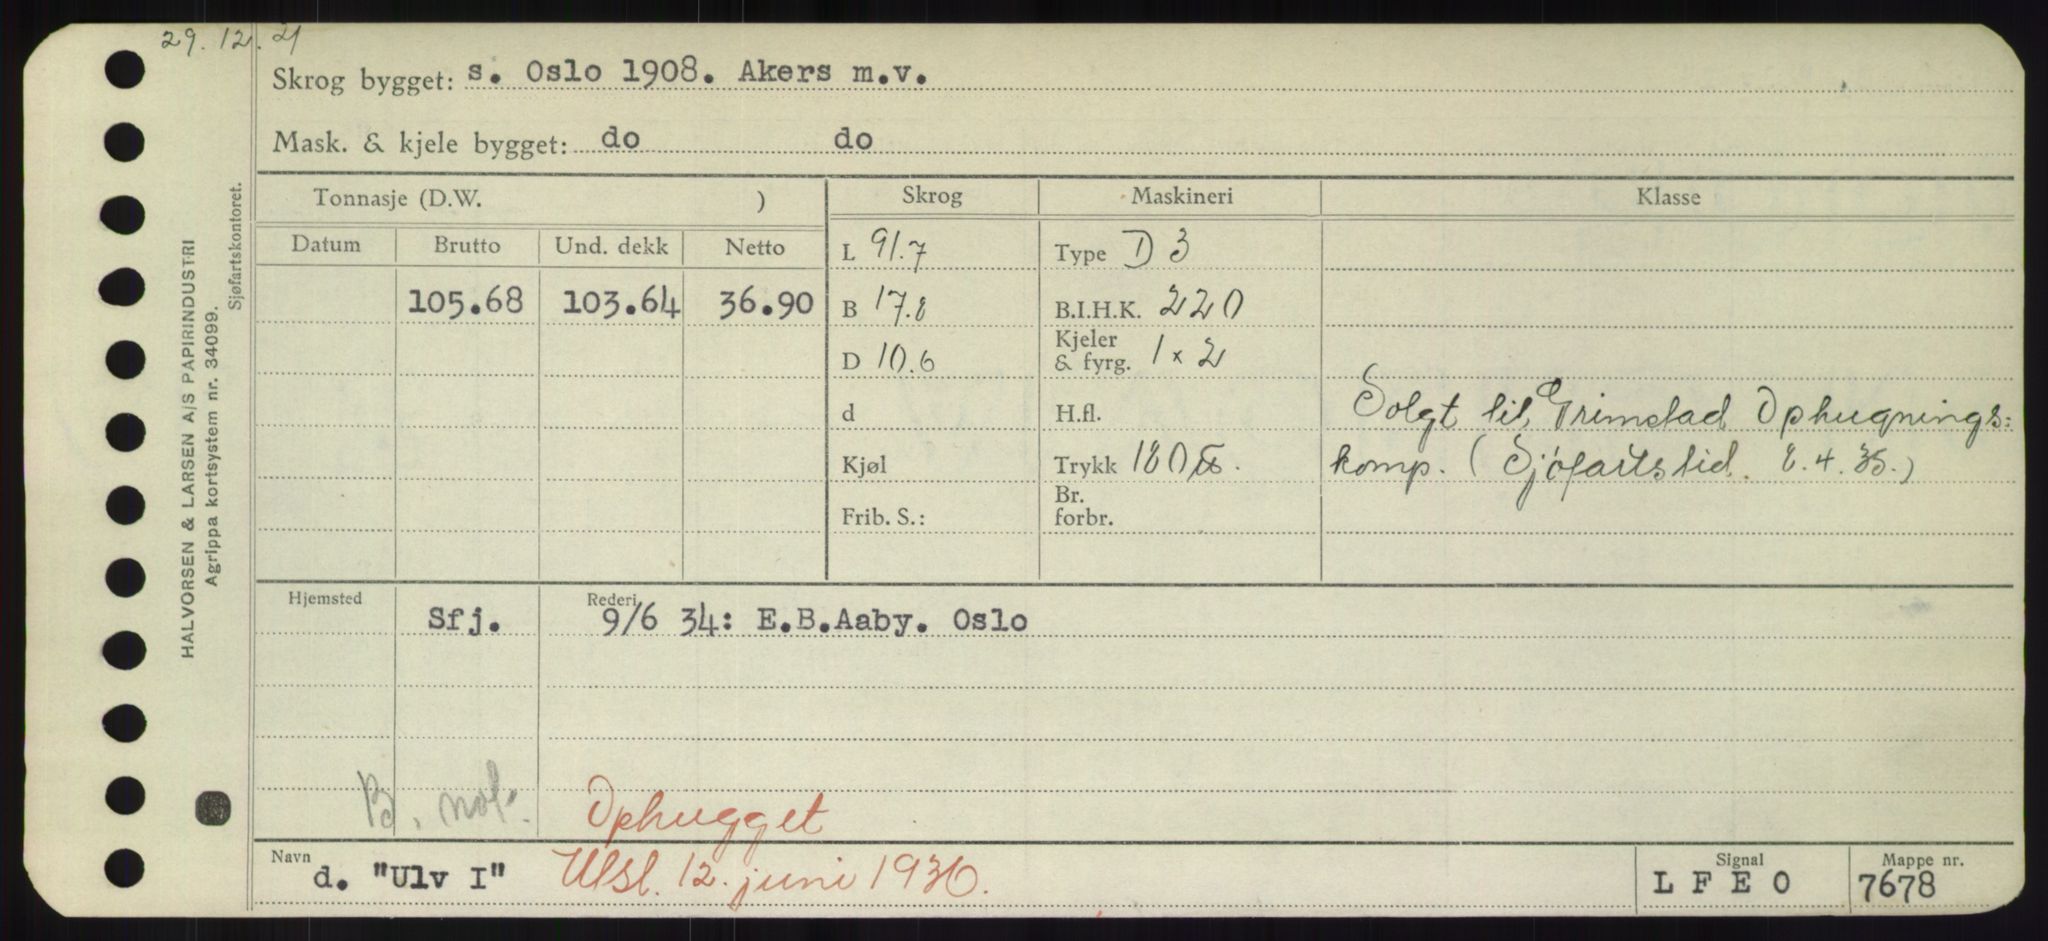 29.12.21
Skrog bygget: s. Oslo 1908. Akers m.v.
Mask. & kjele bygget: do do
Tonnasje (D.W. ) Skrog Maskineri Klasse
Datum Brutto Und. dekk Netto L 91.7 Type D 3
105.68 103.64 36.90 B 17.8 B.I.H.K. 220
D 10.6 Kjeler & fyrg. 1 x 2
d H.fl. Solgt til Grimstad Ophugnings:
Kjøl Trykk 180 komp. (Sjøfartstid. 8.4.35.)
Frib. S.: Br. forbr.
Hjemsted Sfj. Rederi 9/6 34: E.B.Aaby. Oslo
B. not. Ophugget
Navn d. "Ulv I" Utsl. 12. juni 1936. Signal L F E O Mappe nr. 7678
HALVORSEN & LARSEN A/S PAPIRINDUSTRI
Agrippa kortsystem nr. 34099.
Sjøfartskontoret.